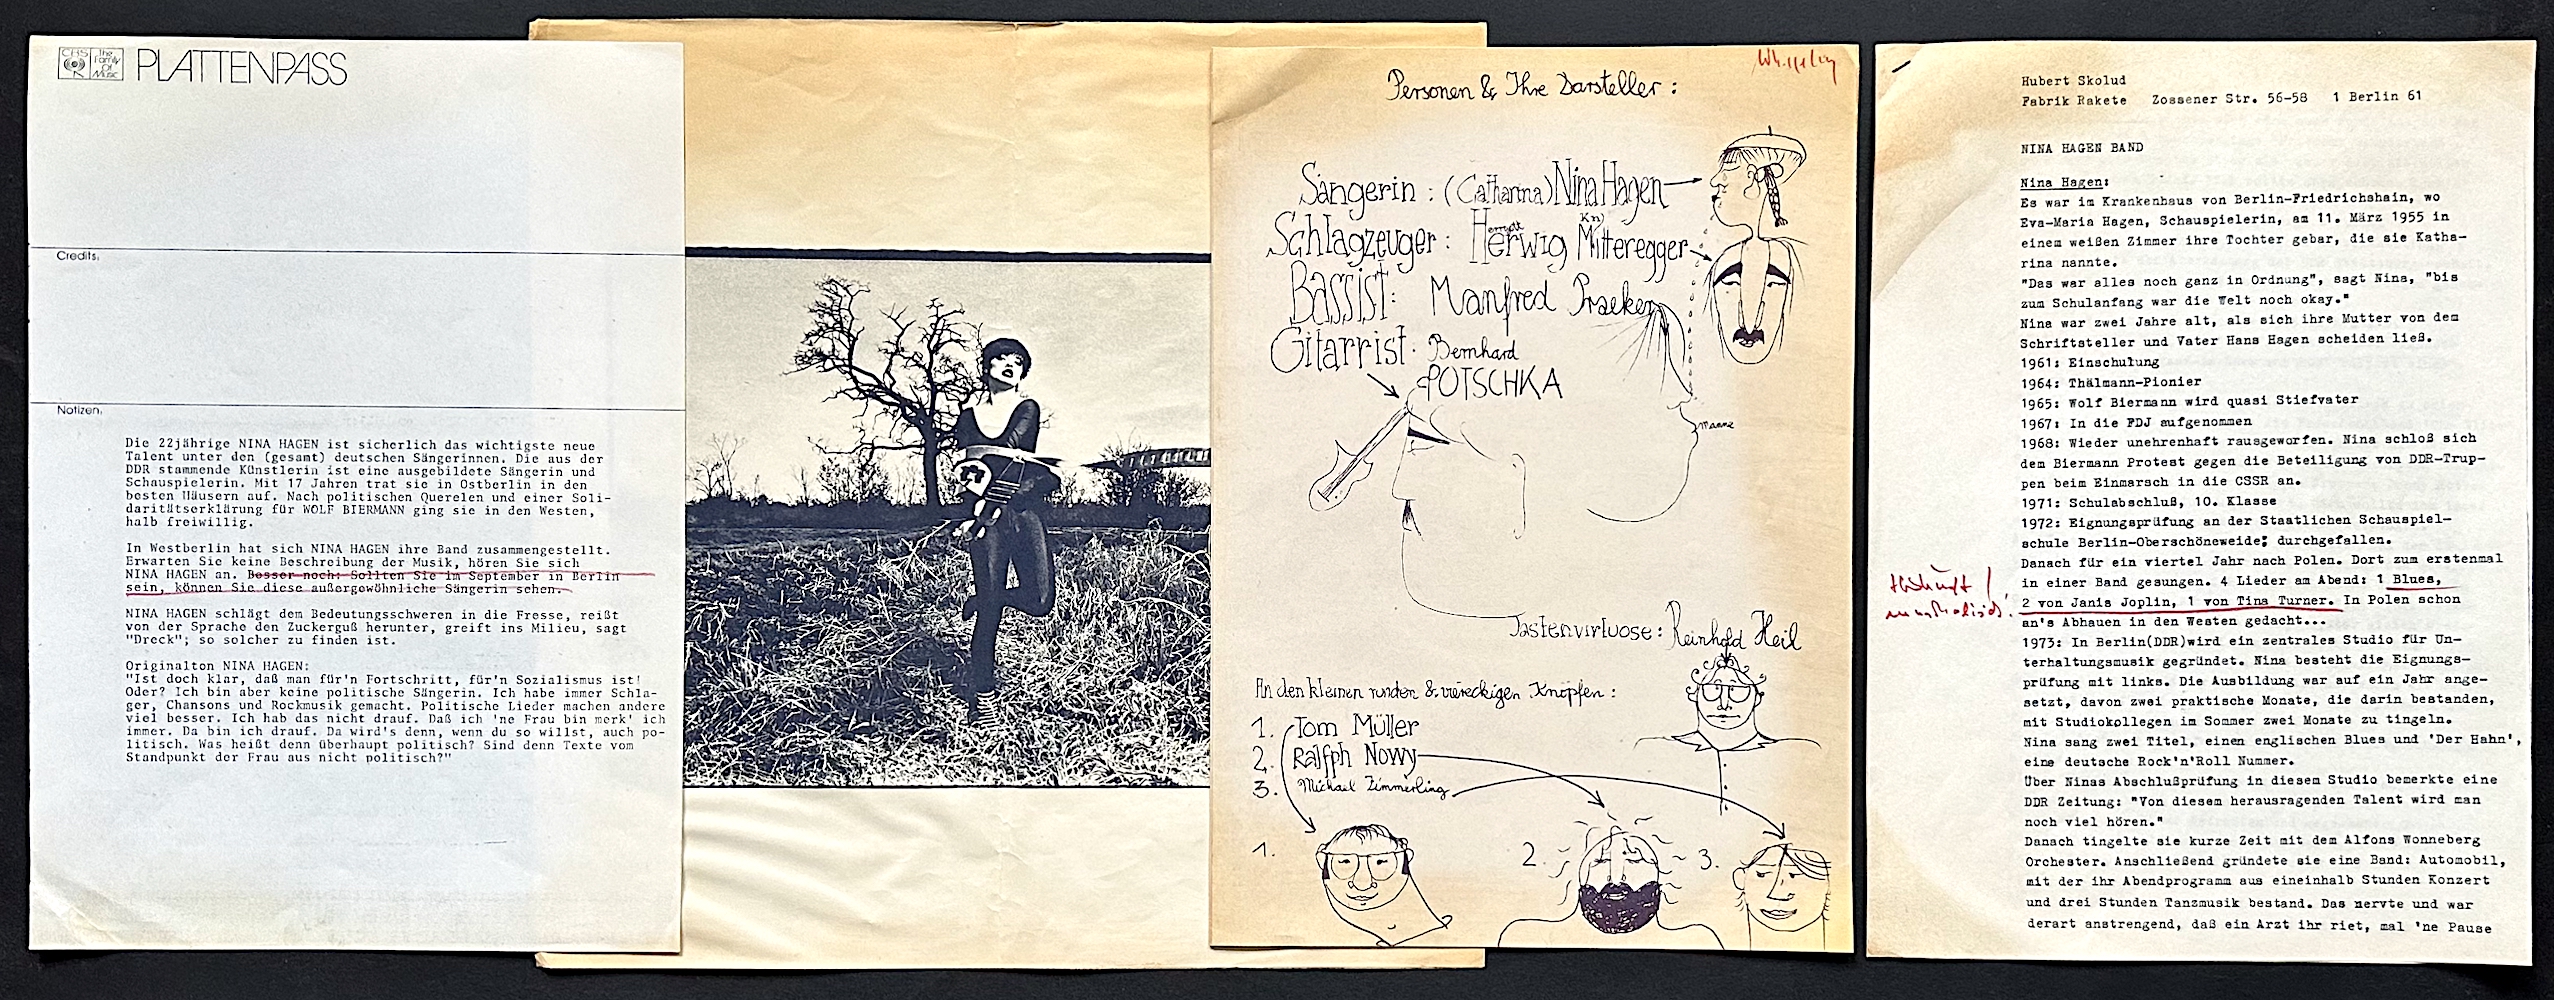 CBS
The Family Of Music
PLATTENPASS
Credits:
Notizen:
Die 22jährige NINA HAGEN ist sicherlich das wichtigste neue
Talent unter den (gesamt) deutschen Sängerinnen. Die aus der
DDR stammende Künstlerin ist eine ausgebildete Sängerin und
Schauspielerin. Mit 17 Jahren trat sie in Ostberlin in den
besten Häusern auf. Nach politischen Querelen und einer Soli-
daritätserklärung für WOLF BIERMANN ging sie in den Westen,
halb freiwillig.
In Westberlin hat sich NINA HAGEN ihre Band zusammengestellt.
Erwarten Sie keine Beschreibung der Musik, hören Sie sich
NINA HAGEN an. Besser noch: Sollten Sie im September in Berlin
sein, können Sie diese außergewöhnliche Sängerin sehen.
NINA HAGEN schlägt dem Bedeutungsschweren in die Fresse, reißt
von der Sprache den Zuckerguß herunter, greift ins Milieu, sagt
"Dreck"; so solcher zu finden ist.
Originalton NINA HAGEN:
"Ist doch klar, daß man für'n Fortschritt, für'n Sozialismus ist!
Oder? Ich bin aber keine politische Sängerin. Ich habe immer Schla-
ger, Chansons und Rockmusik gemacht. Politische Lieder machen andere
viel besser. Ich hab das nicht drauf. Daß ich 'ne Frau bin merk' ich
immer. Da bin ich drauf. Da wird's denn, wenn du so willst, auch po-
litisch. Was heißt denn überhaupt politisch? Sind denn Texte vom
Standpunkt der Frau aus nicht politisch?"
Personen & Ihre Darsteller:
Sängerin: (Catharina) Nina Hagen
Schlagzeuger: Herwig Mitteregger
Bassist: Manfred Praeker
Gitarrist: Bernhard
POTSCHKA
Manne
Tastenvirtuose: Reinhold Heil
An den kleinen runden & viereckigen Knöpfen:
1. Tom Müller
2. Ralfph Nowy
3. Michael Zimmerling
1.
2.
3.
Hubert Skolud
Fabrik Rakete Zossener Str. 56-58 1 Berlin 61
NINA HAGEN BAND
Nina Hagen:
Es war im Krankenhaus von Berlin-Friedrichshain, wo
Eva-Maria Hagen, Schauspielerin, am 11. März 1955 in
einem weißen Zimmer ihre Tochter gebar, die sie Katha-
rina nannte.
"Das war alles noch ganz in Ordnung", sagt Nina, "bis
zum Schulanfang war die Welt noch okay."
Nina war zwei Jahre alt, als sich ihre Mutter von dem
Schriftsteller und Vater Hans Hagen scheiden ließ.
1961: Einschulung
1964: Thälmann-Pionier
1965: Wolf Biermann wird quasi Stiefvater
1967: In die FDJ aufgenommen
1968: Wieder unehrenhaft rausgeworfen. Nina schloß sich
dem Biermann Protest gegen die Beteiligung von DDR-Trup-
pen beim Einmarsch in die CSSR an.
1971: Schulabschluß, 10. Klasse
1972: Eignungsprüfung an der Staatlichen Schauspiel-
schule Berlin-Oberschöneweide; durchgefallen.
Danach für ein viertel Jahr nach Polen. Dort zum erstenmal
in einer Band gesungen. 4 Lieder am Abend: 1 Blues,
2 von Janis Joplin, 1 von Tina Turner. In Polen schon
an's Abhauen in den Westen gedacht...
1973: In Berlin(DDR)wird ein zentrales Studio für Un-
terhaltungsmusik gegründet. Nina besteht die Eignungs-
prüfung mit links. Die Ausbildung war auf ein Jahr ange-
setzt, davon zwei praktische Monate, die darin bestanden,
mit Studiokollegen im Sommer zwei Monate zu tingeln.
Nina sang zwei Titel, einen englischen Blues und 'Der Hahn',
eine deutsche Rock'n'Roll Nummer.
Über Ninas Abschlußprüfung in diesem Studio bemerkte eine
DDR Zeitung: "Von diesem herausragenden Talent wird man
noch viel hören."
Danach tingelte sie kurze Zeit mit dem Alfons Wonneberg
Orchester. Anschließend gründete sie eine Band: Automobil,
mit der ihr Abendprogramm aus eineinhalb Stunden Konzert
und drei Stunden Tanzmusik bestand. Das nervte und war
derart anstrengend, daß ein Arzt ihr riet, mal 'ne Pause